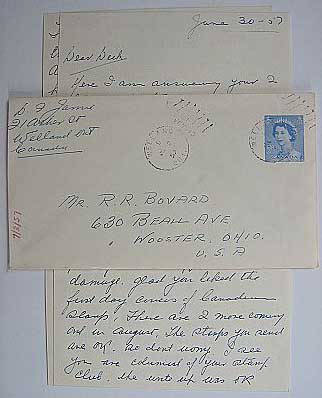 June 30-57
Dear Beck
Here I am answering your 2
21 Asher St
Welland Ont
Canada
WELLAND
7/2/57
MR. R.R. BOVARD.
630 BEALL AVE
WOOSTER, OHIO.
U.S.A
damage. glad you liked the
first day covers of Canadian
Stamp. There are 2 more coming
out in August. The stamps you send
are OK. so dont worry. I see
you are columist of your stamp
Club. the write up was OK